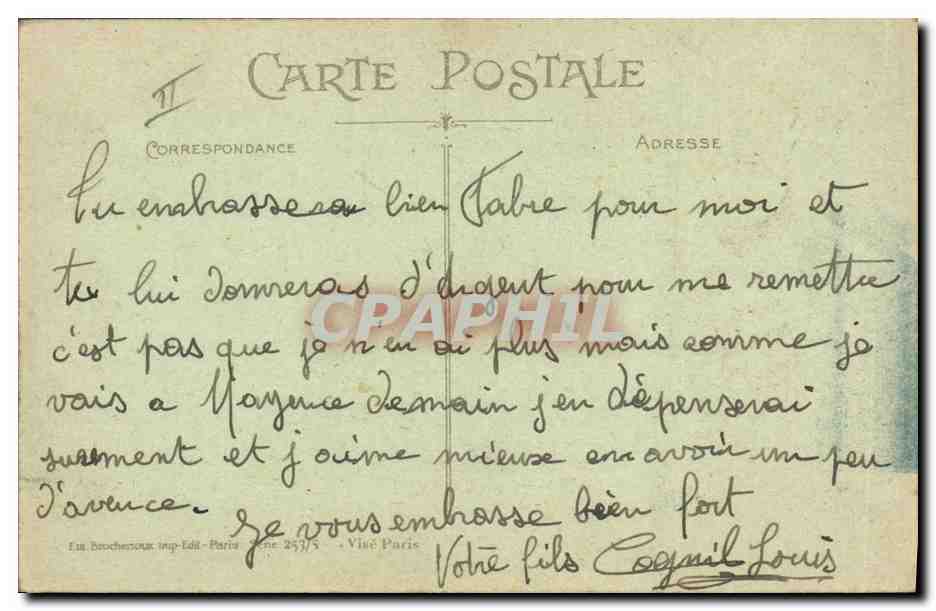 CARTE POSTALE
II
CORRESPONDANCE
ADRESSE
Tu embrassera bien Fabre pour moi et
tu lui donneras d'argent pour me remettre
c'est pas que je n'en ai plus mais comme je
vais a Mayence demain j'en dépenserai
surement et j'aime mieux en avoir un peu
d'avence.
Je vous embrasse bien fort
Votre fils Cognil Louis
Imp-Edit-Paris Série 253/5 Visé Paris
CPAPHIL